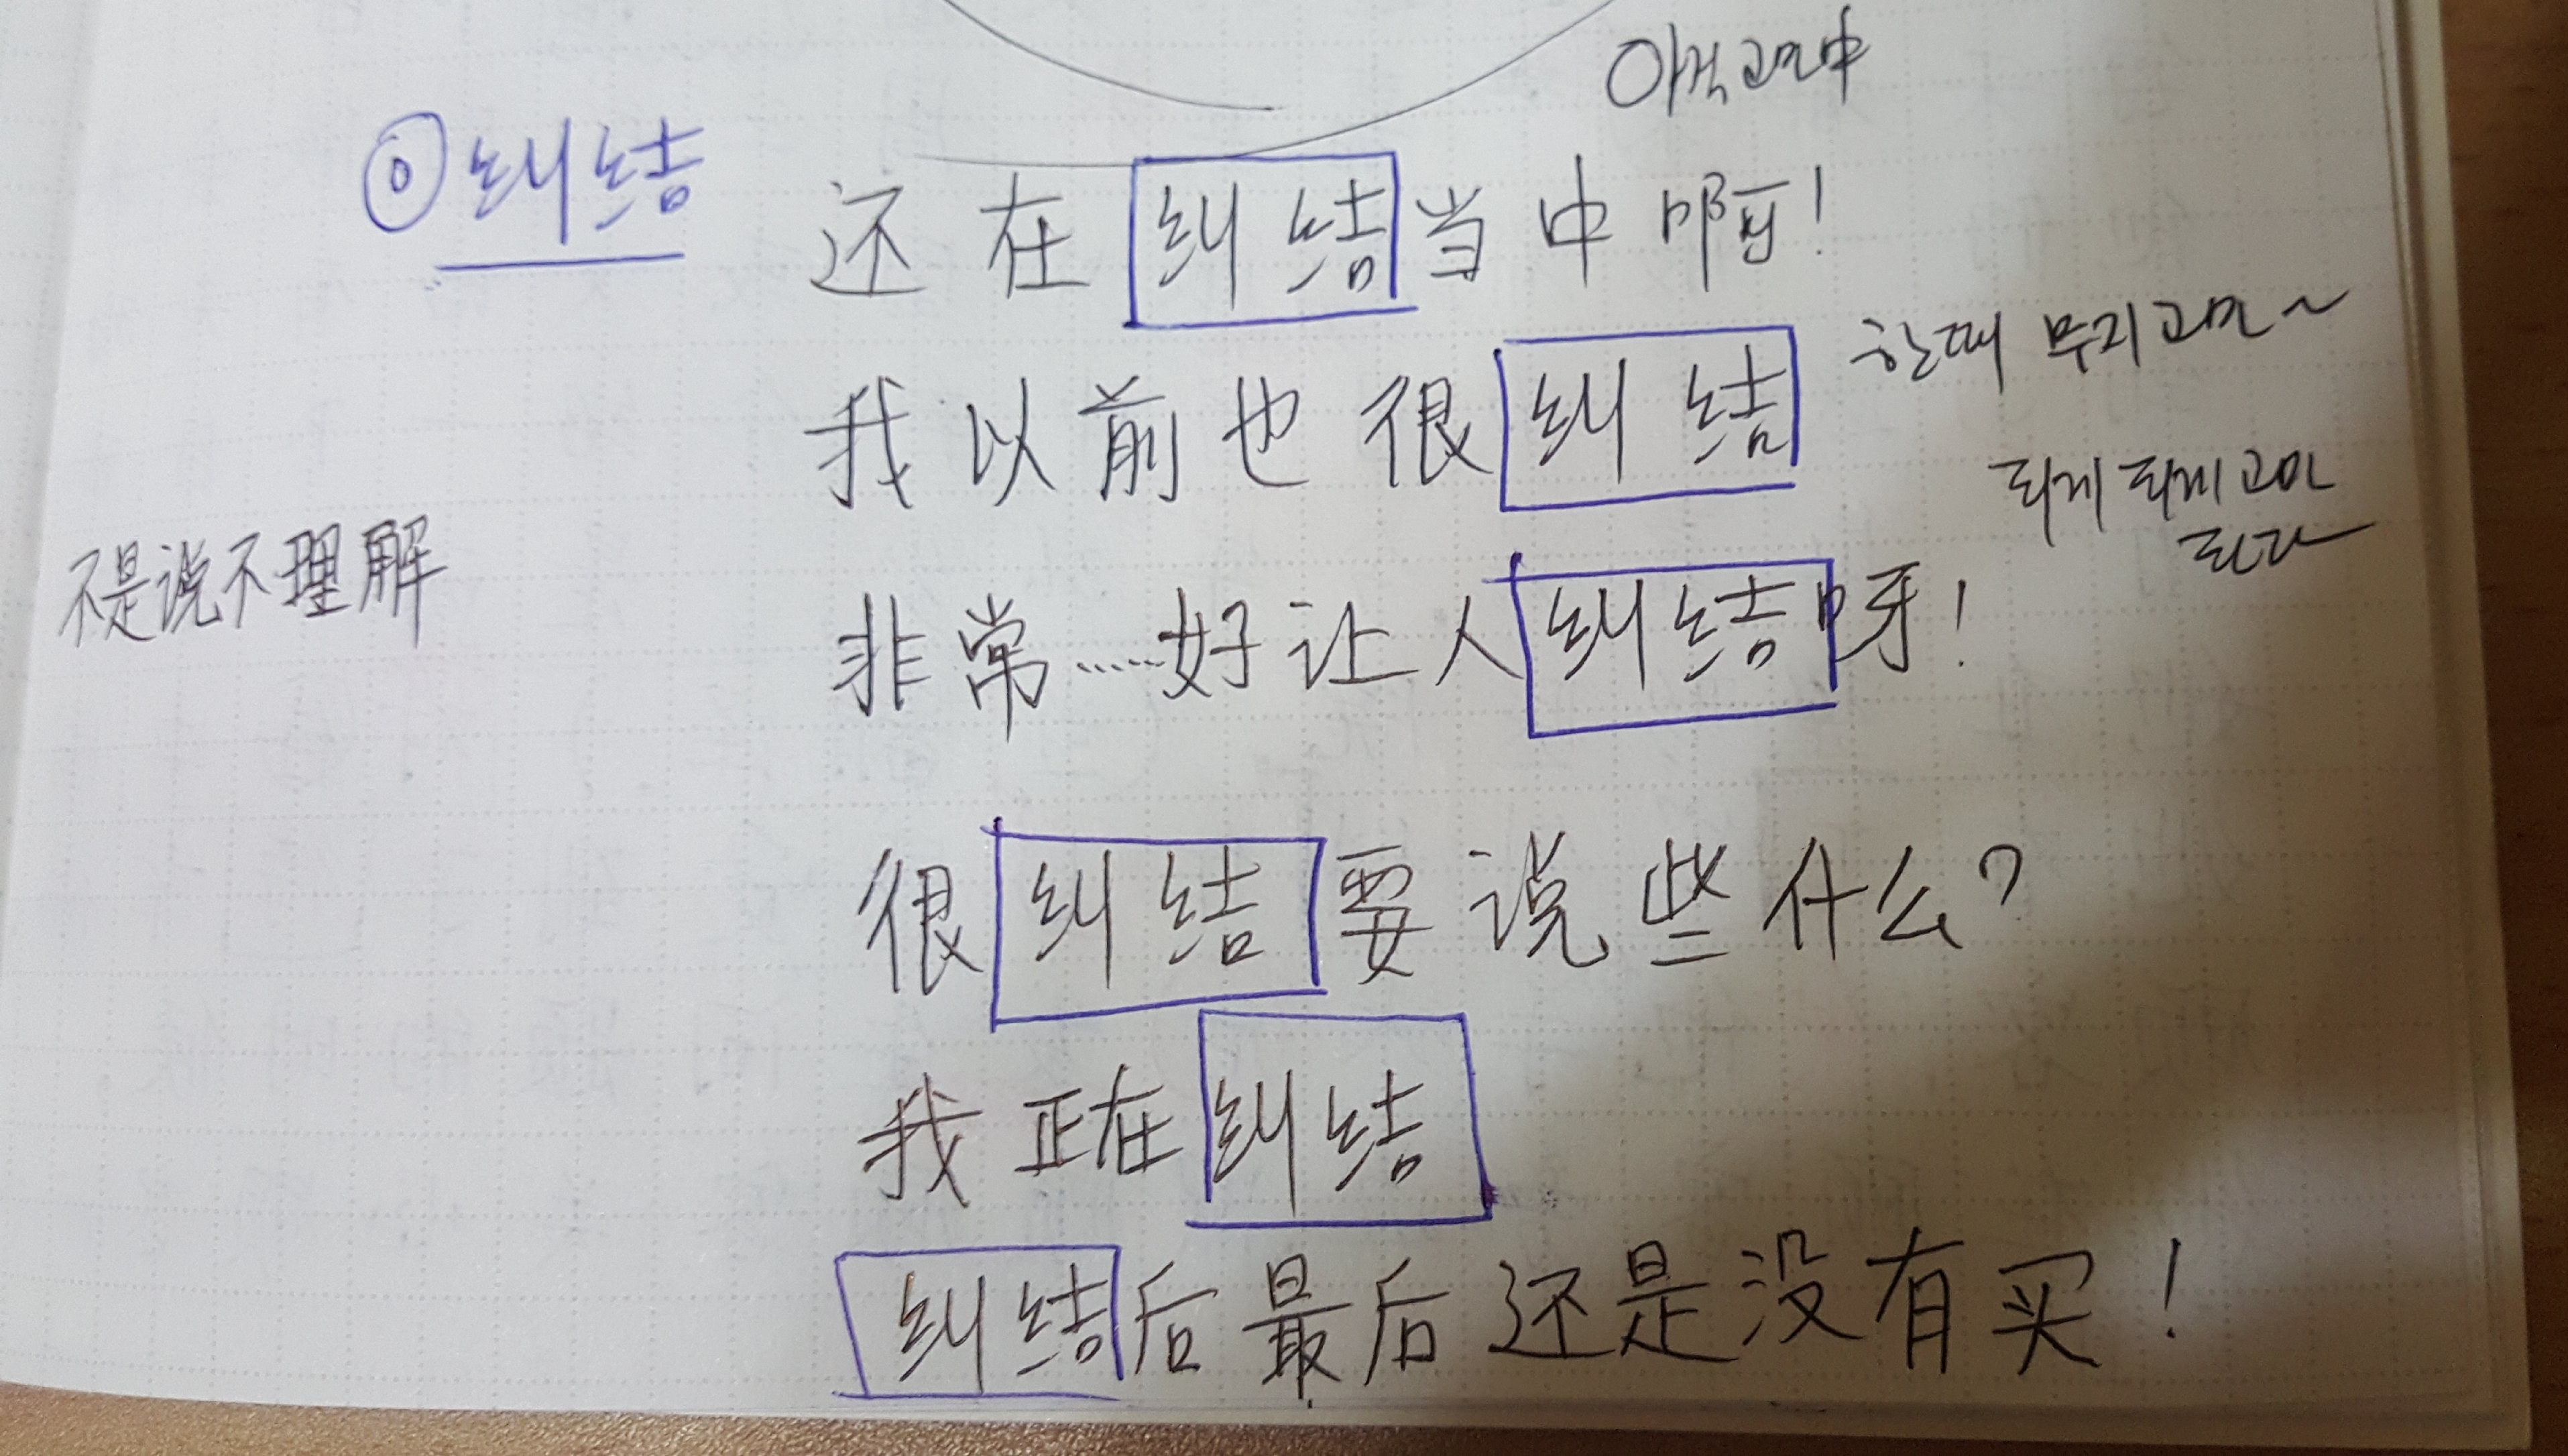 아직 고민中
⊙ 纠结
还在纠结当中啊!
한때 무지 고민~
我以前也很纠结
되게 되게 고민
된다
不是说不理解
非常……好让人纠结呀!
很纠结要说些什么?
我正在纠结
纠结后最后还是没有买!